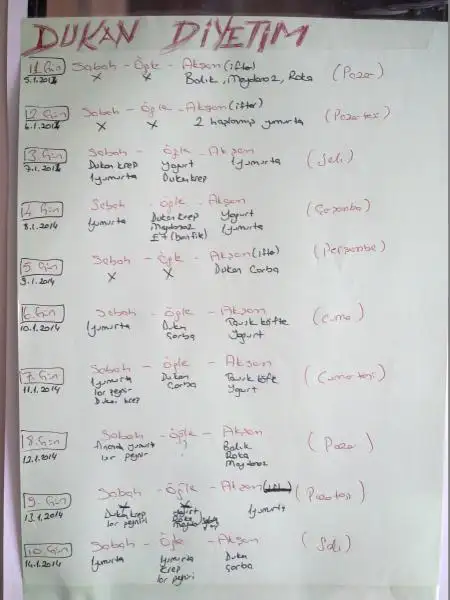 DUKAN DİYETİM
1. Gün Sabah - Öğle - Akşam (iftar)
5.1.2014 x x Balık, Maydanoz, Roka (Pazar)
2. Gün Sabah - Öğle - Akşam (iftar) (Pazartesi)
6.1.2014 x x 2 haşlanmış yumurta
3. Gün Sabah - Öğle - Akşam (Salı)
7.1.2014 Dukan krep Yogurt 1 yumurta
1 yumurta Dukan krep
4. Gün Sabah - Öğle - Akşam (Çarşamba)
8.1.2014 yumurta Dukan krep Yogurt
Maydanoz 1 yumurta
Et (bonfile)
5. Gün Sabah - Öğle - Akşam (iftar) (Perşembe)
9.1.2014 x x Dukan Çorba
6. Gün Sabah - Öğle - Akşam (Cuma)
10.1.2014 1 yumurta Dukan Tavuk köfte
Çorba Yogurt
7. Gün Sabah - Öğle - Akşam (Cumartesi)
11.1.2014 1 yumurta Dukan Tavuk köfte
lor peynir Çorba Yogurt
Dukan krep
8. Gün Sabah - Öğle - Akşam (Pazar)
12.1.2014 yumurta Balık
lor peynir Roka
Maydanoz
9. Gün Sabah - Öğle - Akşam (Pazartesi)
13.1.2014 Dukan krep 1 yumurta
lor peyniri Roka
10. Gün Sabah - Öğle - Akşam (Salı)
14.1.2014 1 yumurta yumurta Dukan
krep Çorba
lor peyniri